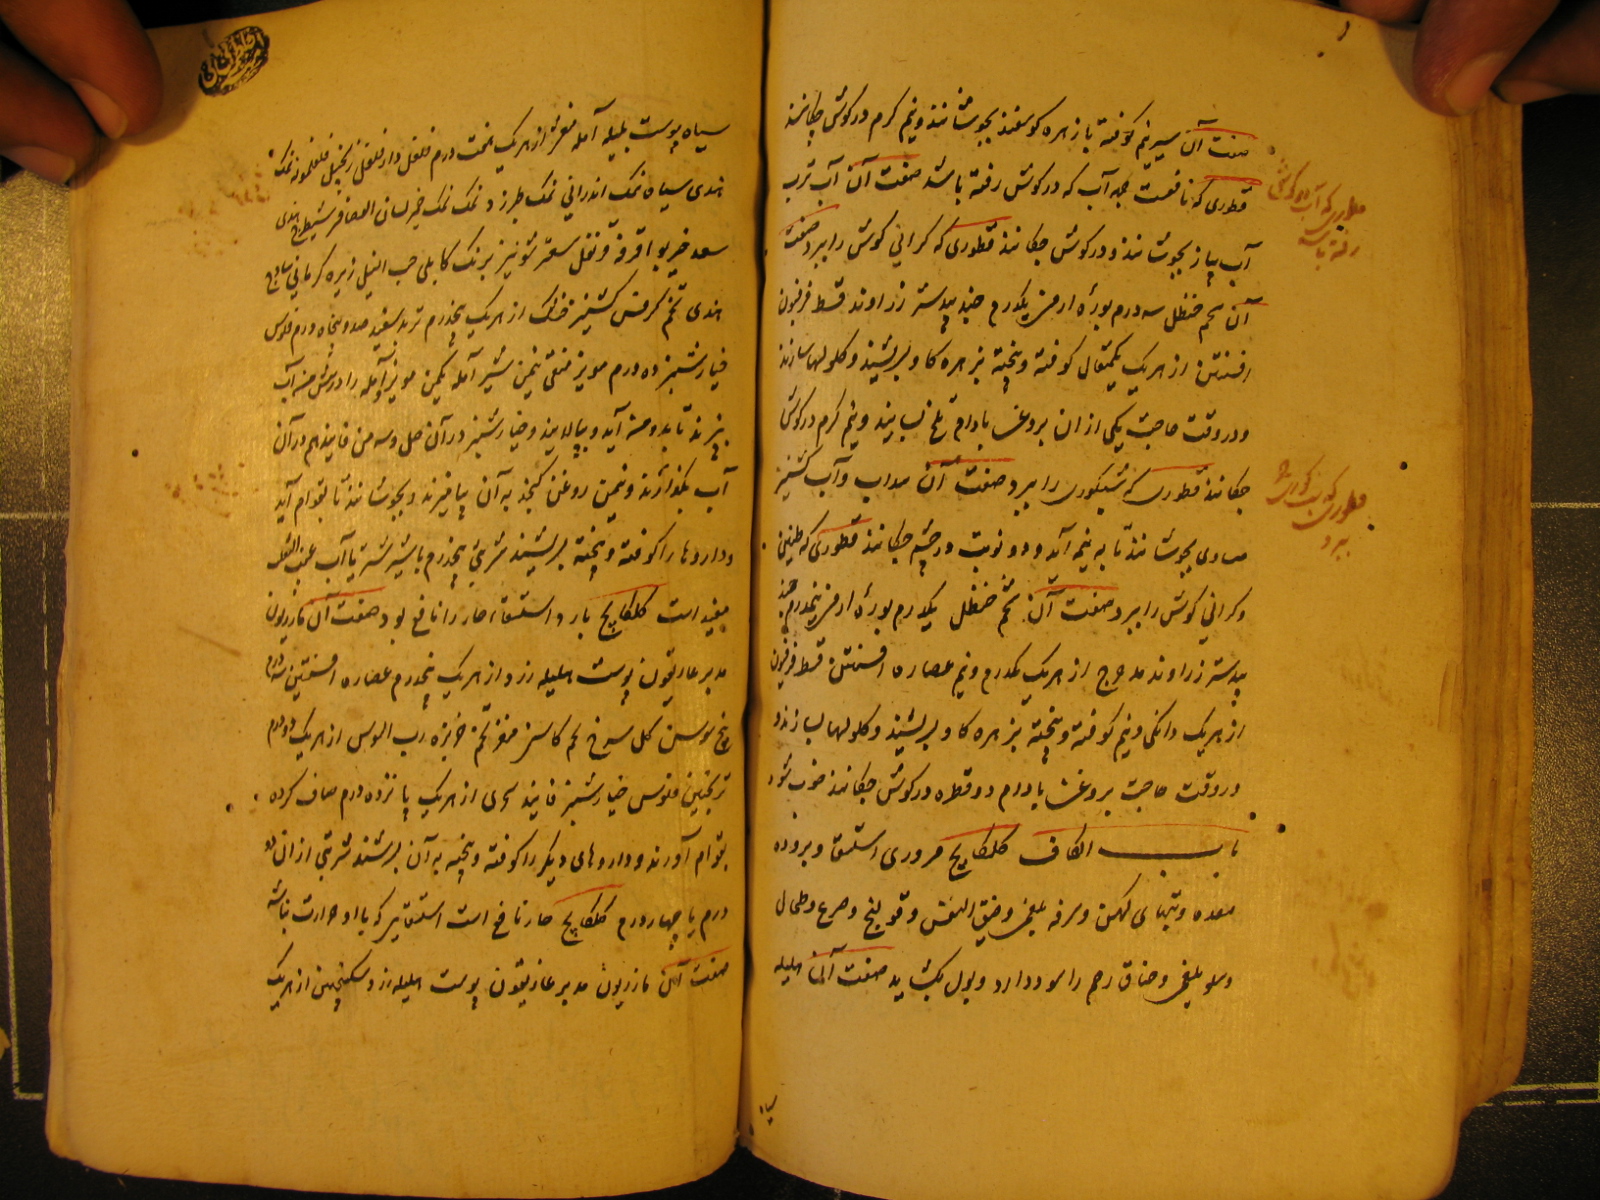 صفت آن سیر نیم کوفته با زهره کوسفند بجوشانند و نیم کرم در کوش چکانند
قطوری که نافعست بجهه آب که در کوش رفته باشد صفت آن آب ترب
آب پیاز بجوشانند و در کوش چکانند قطوری که کرانی کوش را ببرد صفت
آن شحم حنظل سه درم بوره ارمنی یکدرم جند بیدستر زراوند قسط فرفیون
افسنتین از هر یک یکمثقال کوفته و بیخته بزهره کاو بسریشند و کلولها سازند
و در وقت حاجت یکی از ان بروغن بادام تلخ بسایند و نیم کرم در کوش
چکانند قطوری که شبکوری را ببرد صفت آن سداب و آب کشنیز
مساوی بجوشانند تا به نیمه آید و دو نوبت در چشم چکانند قطوری که طنین
و کرانی کوش را ببرد صفت آن شحم حنظل یکدرم بوره ارمنی نیمدرم جند
بیدستر زراوند مدحرج از هر یک یکدرم و نیم عصاره افسنتین قسط فرفیون
از هر یک دانکی و نیم کوفته و بیخته بزهره کاو بسریشند و کلولها بسازند و
در وقت حاجت بروغن بادام دو قطره در کوش چکانند خوب شود
باب الکاف کلکلانج ضروری استسقا و بروده
معده و تبهای کهن و سرفه بلغمی و ضیق النفس و قولنج و صرع و طحال
و سلو بلغمی و خناق رحم را سود دارد و بول بکشاید صفت آن هلیله
سیاه
قطوری که آب در کوش
رفته باشد
قطوری که شبکوری را
ببرد
سیاه پوست بلیله آمله مقشر از هر یک هفت درم فلفل دارفلفل زنجبیل فلفلمونه نمک
هندی سیاه نمک اندرانی نمک طبرزد نمک نمک خمیر لسان العصافیر شیطرج هندی
سعد خیربوا قرفه قرنفل سعتر شونیز برنک کابلی حب النیل زیره کرمانی ساذج
هندی تخم کرفس کشنیز خشک از هر یک پنجدرم تربد سفید صد و پنجاه درم فلوس
خیارشنبر ده درم مویز منقی نیمن شیر آمله یکمن مویز و آمله را در شش من آب
بپزند تا بدو من آید و بپالایند و خیارشنبر در آن حل و سه من فانیذ هم در آن
آب بکدازند و نیمن روغن کنجد به آن بیامیزند و بجوشانند تا بقوام آید
و داروها را کوفته و بیخته بسریشند شربتی پنجدرم با شیر شتر یا آب عنب الثعلب
مفید است کلکلانج بارد استسقاء حار را نافع بود صفت آن مازریون
مدبر غاریقون پوست هلیله زرد از هر یک پنجدرم عصاره افسنتین سه درم
بیخ سوسن کل سرخ تخم کاسنی مغز تخم خربزه رب السوس از هر یک دو درم
ترنجبین فلوس خیارشنبر فانیذ سجزی از هر یک پانزده درم صاف کرده
بقوام آورند و داروهای دیکر را کوفته و بیخته به آن بسرشند شربتی از ان دو
درم یا چهار درم کلکلانج حار نافع است استسقایی را که با او حرارت نباشد
صفت آن مازریون مدبر غاریقون پوست هلیله زرد سکبینج از هر یک